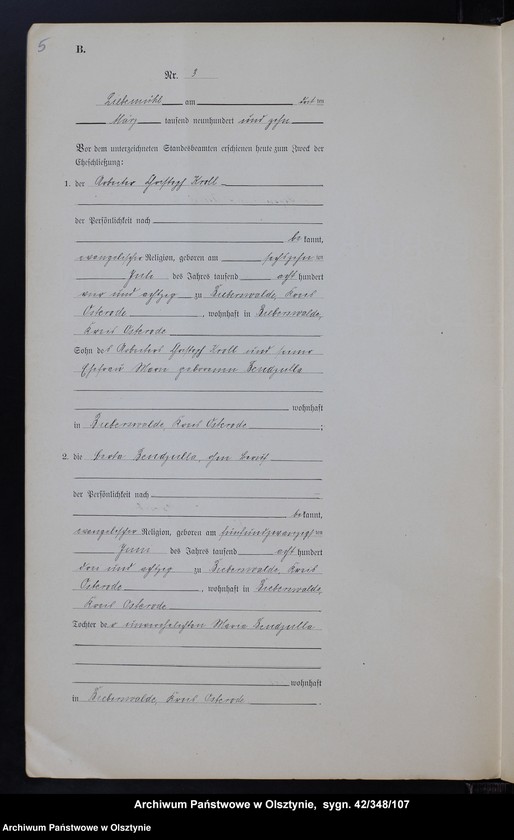 5
B.
Nr. 3
Liebemühl am
März tausend neunhundert und zehn
Vor dem unterzeichneten Standesbeamten erschienen heute zum Zweck der
Eheschließung:
1. der Arbeiter Christoph Kroll
der Persönlichkeit nach
be kannt,
evangelischer Religion, geboren am
Juli des Jahres tausend acht hundert
und achtzig zu Bieberswalde, Kreis
Osterode, wohnhaft in Bieberswalde,
Kreis Osterode
Sohn des Arbeiters Christoph Kroll und seiner
Ehefrau Marie geborenen
wohnhaft
in Bieberswalde, Kreis Osterode;
2. die Berta , ohne Beruf
der Persönlichkeit nach
be kannt,
evangelischer Religion, geboren am fünfundzwanzigsten
Juni des Jahres tausend acht hundert
drei und achtzig zu Bieberswalde, Kreis
Osterode, wohnhaft in Bieberswalde,
Kreis Osterode
Tochter der unverehelichten Maria
wohnhaft
in Bieberswalde, Kreis Osterode.
Archiwum Państwowe w Olsztynie, sygn. 42/348/107
Archiwum Państwowe w Olsztynie